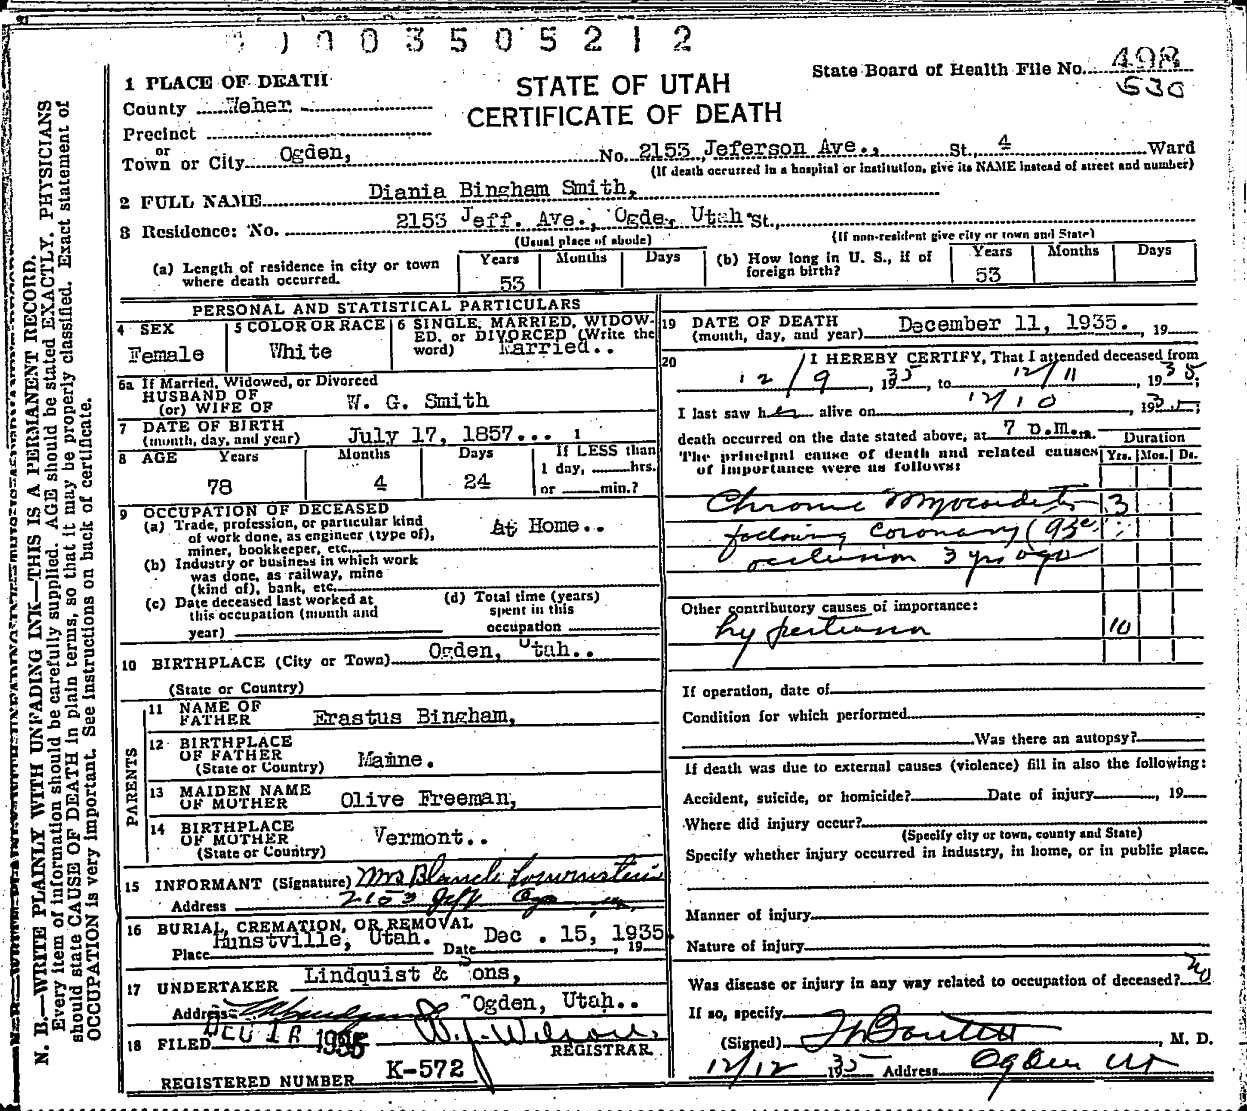 0 1 0 0 3 5 0 5 2 1 2
STATE OF UTAH
CERTIFICATE OF DEATH
State Board of Health File No. 498
530
1 PLACE OF DEATH
County Weber
Precinct
or
Town or City Ogden, No. 2153 Jeferson Ave., St., 4 Ward
(If death occurred in a hospital or institution, give its NAME instead of street and number)
2 FULL NAME Diania Bingham Smith,
3 Residence: No. 2153 Jeff. Ave., Ogde, Utah St.,
(Usual place of abode) (If non-resident give city or town and State)
(a) Length of residence in city or town where death occurred. Years 53 Months Days
(b) How long in U. S., if of foreign birth? Years 53 Months Days
PERSONAL AND STATISTICAL PARTICULARS
4 SEX Female
5 COLOR OR RACE White
6 SINGLE, MARRIED, WIDOWED, or DIVORCED (Write the word) Married..
6a If Married, Widowed, or Divorced
HUSBAND OF
(or) WIFE OF W. G. Smith
7 DATE OF BIRTH
(month, day, and year) July 17, 1857... 1
8 AGE Years 78 Months 4 Days 24 If LESS than 1 day, hrs. or min.?
9 OCCUPATION OF DECEASED
(a) Trade, profession, or particular kind of work done, as engineer (type of), miner, bookkeeper, etc. At Home..
(b) Industry or business in which work was done, as railway, mine (kind of), bank, etc.
(c) Date deceased last worked at this occupation (month and year)
(d) Total time (years) spent in this occupation
10 BIRTHPLACE (City or Town) Ogden, Utah..
(State or Country)
PARENTS
11 NAME OF FATHER Erastus Bingham,
12 BIRTHPLACE OF FATHER (State or Country) Maine.
13 MAIDEN NAME OF MOTHER Olive Freeman,
14 BIRTHPLACE OF MOTHER (State or Country) Vermont..
15 INFORMANT (Signature) Mrs Blanch
Address 2153 Jeff
16 BURIAL, CREMATION, OR REMOVAL
Place Hunstville, Utah. Date Dec. 15, 1935. 19
17 UNDERTAKER Lindquist & Sons,
Address Ogden, Utah..
18 FILED DEC 1935 W. J. Wilson
REGISTRAR.
REGISTERED NUMBER K-572
19 DATE OF DEATH
(month, day, and year) December 11, 1935. , 19
20 I HEREBY CERTIFY, That I attended deceased from
12/9, 1935, to 12/11, 1935;
I last saw her alive on 12/10, 1935;
death occurred on the date stated above, at 7 p.m.
The principal cause of death and related causes of importance were as follows:
Duration
Yrs. Mos. Ds.
Chronic Myocarditis 3
following coronary (93c)
occlusion 3 yrs ago
Other contributory causes of importance:
hypertension 10
If operation, date of
Condition for which performed
Was there an autopsy?
If death was due to external causes (violence) fill in also the following:
Accident, suicide, or homicide? Date of injury , 19
Where did injury occur?
(Specify city or town, county and State)
Specify whether injury occurred in industry, in home, or in public place.
Manner of injury
Nature of injury
Was disease or injury in any way related to occupation of deceased? No
If so, specify
(Signed) , M. D.
12/12 1935 Address Ogden Ut
N. B.—WRITE PLAINLY WITH UNFADING INK—THIS IS A PERMANENT RECORD.
Every item of information should be carefully supplied. AGE should be stated EXACTLY. PHYSICIANS
should state CAUSE OF DEATH in plain terms, so that it may be properly classified. Exact statement of
OCCUPATION is very important. See instructions on back of certificate.